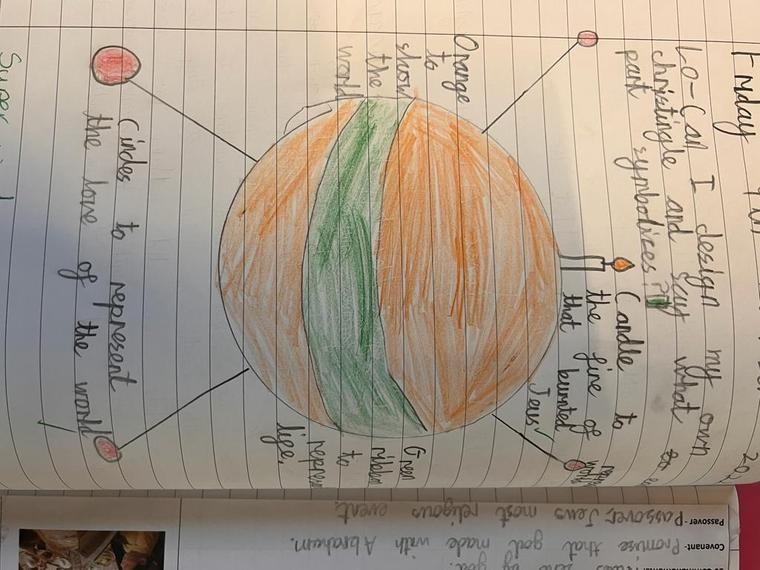 Friday
LO-Can I design my own
christingle and say what
part symbolizes?
Candle to
the fire of
that burnted
Jeus
Orange
to
show
the
world
Green
ribbon
to
represen
lige.
Circles to represent
the love of the world
Passover - Passover, Jews most religous event.
Covenant - Promise that god made with Abraham.